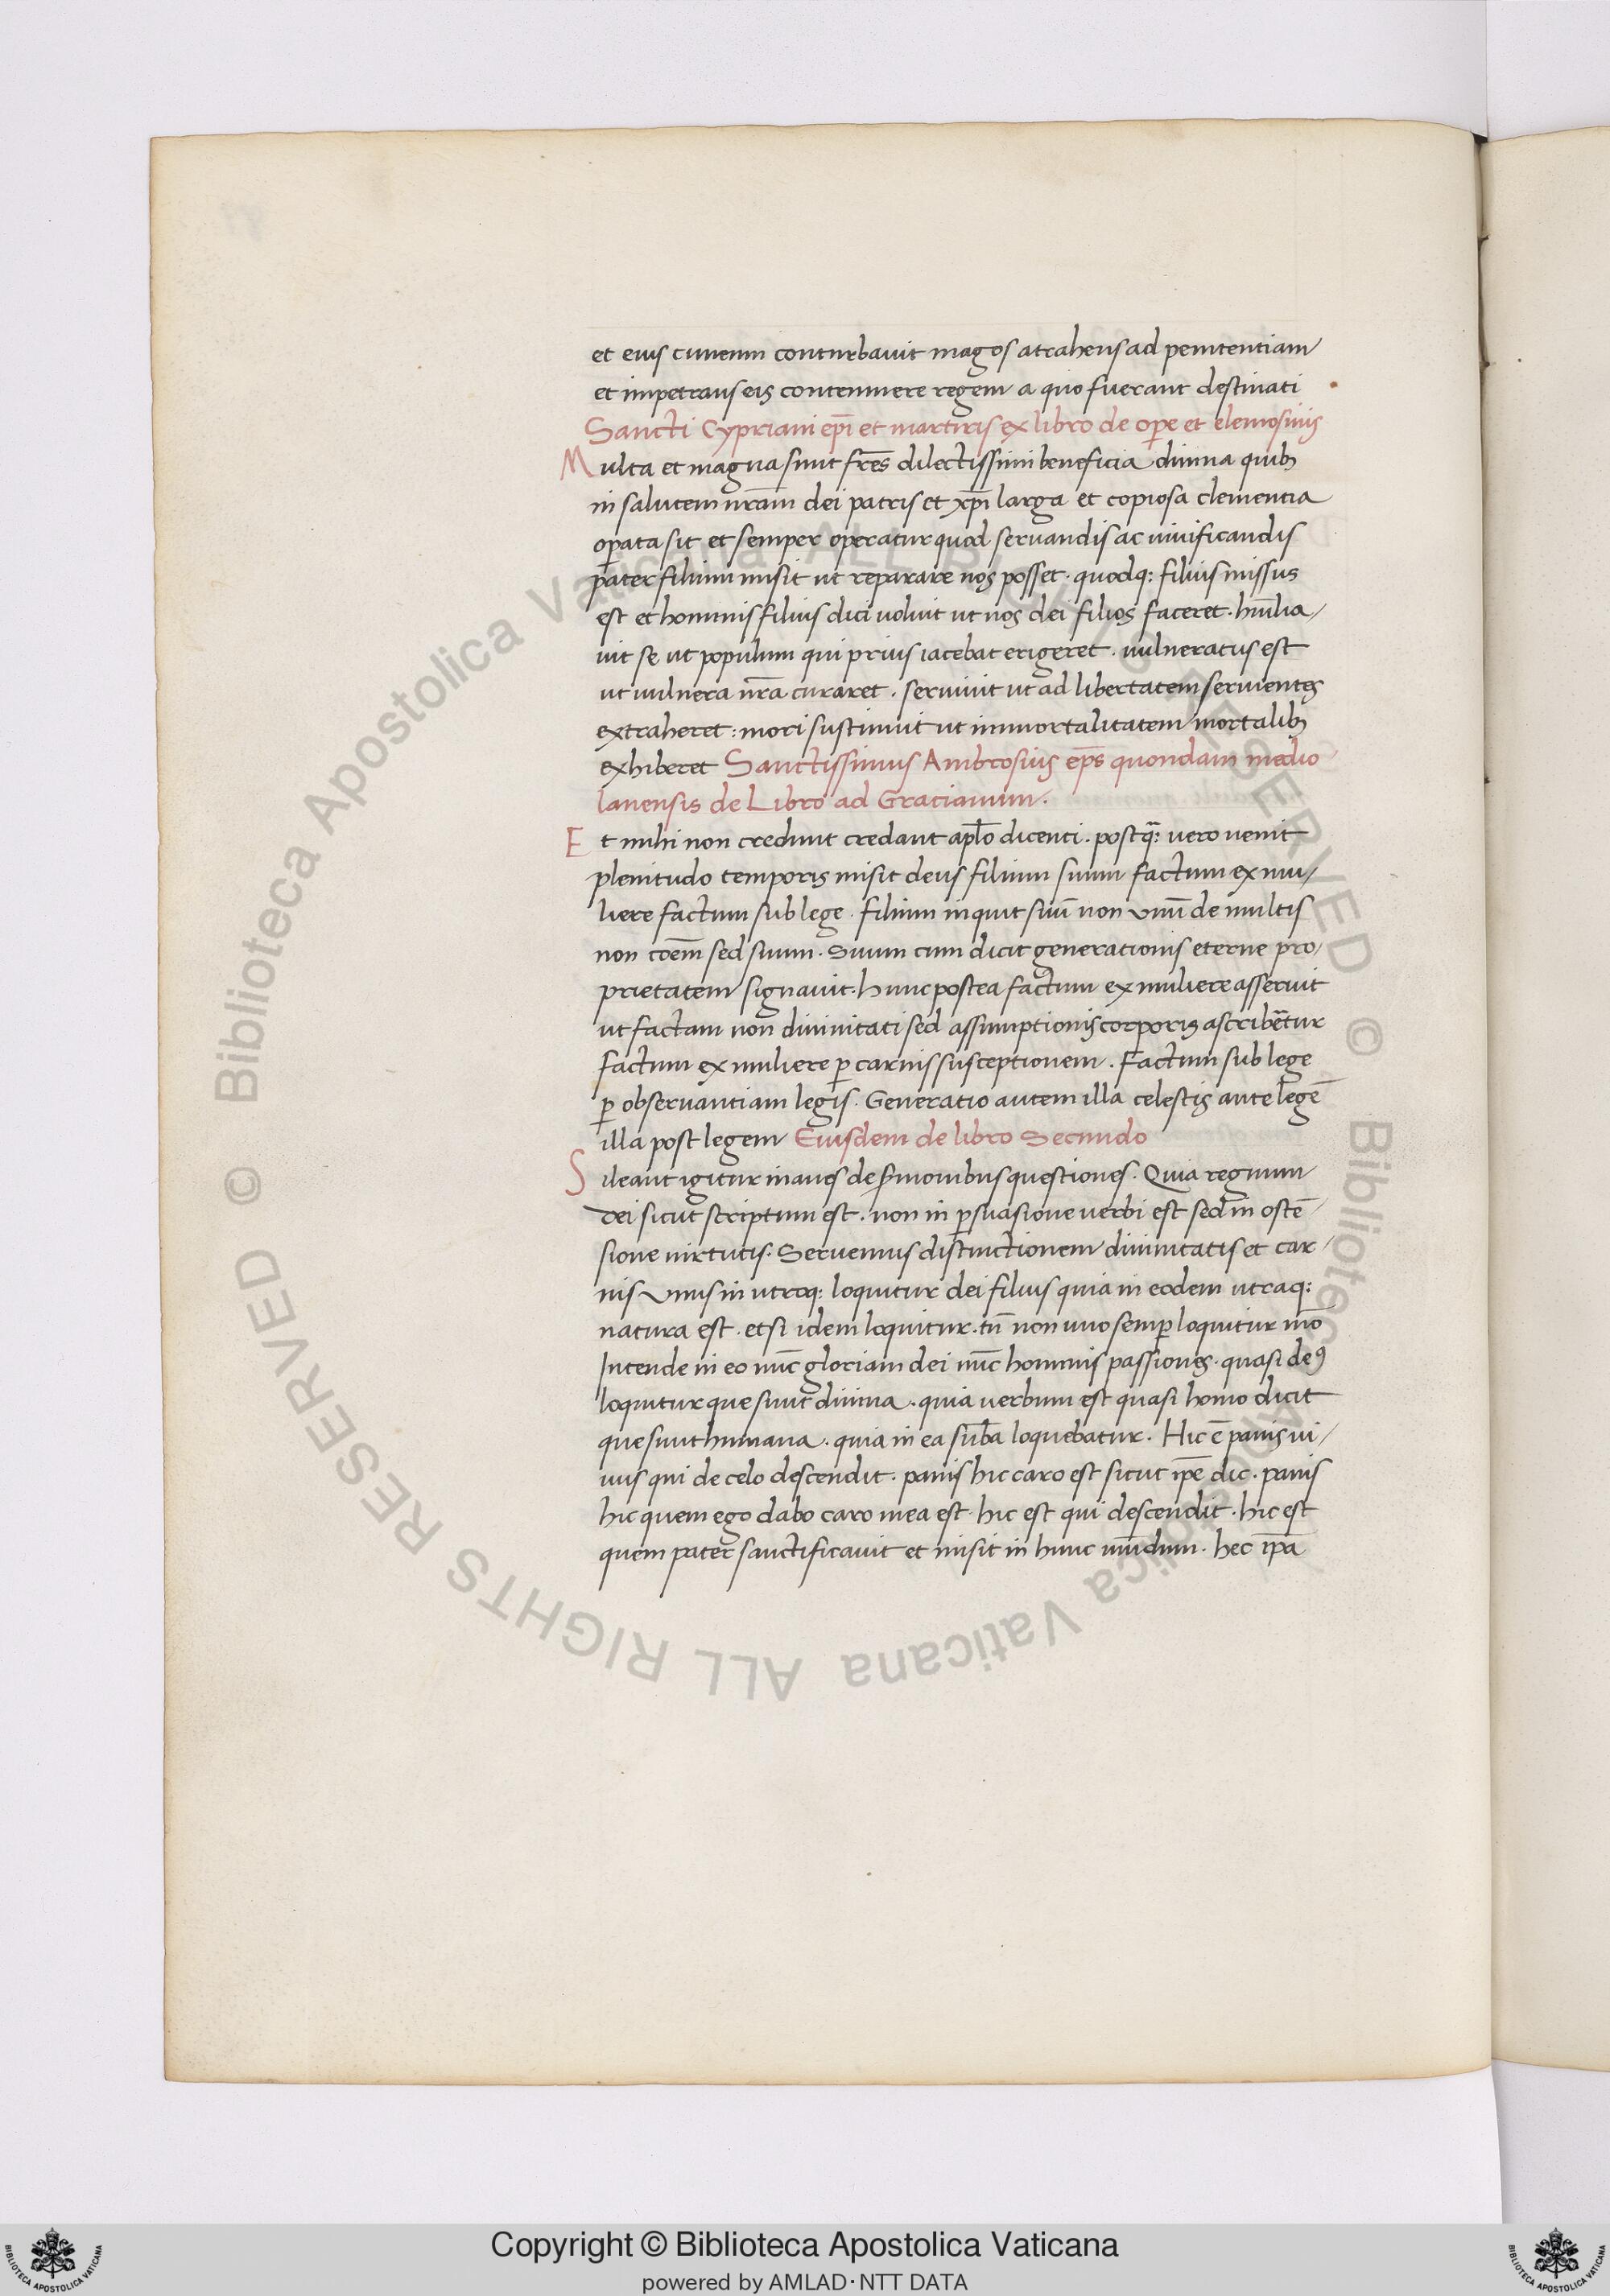 et eius cuneum conturbauit magos atrahens ad penitentiam
et impetrans eis contemnere regem a quo fuerant destinati
Sancti Cypriani ep̄i et martiris ex libro de oꝑe et elemosinis
Multa et magna sunt fr̄es dilectissimi beneficia diuina quibꝫ
in salutem nr̄am dei patris et xp̄i larga et copiosa clementia
oꝑata sit et semper operatur quod seruandis ac uiuificandis
pater filium misit ut reparare nos posset · quodq: filius missus
est et hominis filius dici uoluit ut nos dei filios faceret · humilia/
uit se ut populum qui prius iacebat erigeret · uulneratus est
ut uulnera nr̄a curaret · seruiuit ut ad libertatem seruientes
extraheret : mori sustinuit ut immortalitatem mortalibꝫ
exhiberet Sanctissimus Ambrosius ep̄s quondam medio/
lanensis de Libro ad Gratianum.
Et mihi non credunt credant apl̄o dicenti · postq̄: uero uenit
plenitudo temporis misit deus filium suum factum ex mu/
liere factum sub lege · filium inquit suū non unū de multis
non cōem̄ sed suum · Suum cum dicit generationis eterne pro/
prietatem signauit · hunc postea factum ex muliere asseruit
ut factam non diuinitati sed assumptionis corporis ascribētur
factum ex muliere ꝑ carnis susceptionem · Factum sub lege
ꝑ obseruantiam legis · Generatio autem illa celestis ante legē
illa post legem Eiusdem de libro Secundo
Sileant igitur inanes de s̄monibus questiones · Quia regnum
dei sicut scriptum est · non in ꝑsuasione uerbi est sed in ostē/
sione uirtutis · Seruemus distinctionem diuinitatis et car/
nis Unus in utroq: loquitur dei filius quia in eodem utraq:
natura est · et si idem loquitur · tn̄ non uno semꝑ loquitur mō
Intende in eo nūc gloriam dei nūc hominis passiones · quasi deꝰ
loquitur que sunt diuina · quia uerbum est quasi homo dicit
que sunt humana · quia in ea sub̄a loquebatur · Hic ē panis ui/
uus qui de celo descendit · panis hic caro est sicut ip̄e dic · panis
hic quem ego dabo caro mea est · hic est qui descendit · hic est
quem pater sanctificauit et misit in hunc mūdum · hec ip̄a
© Biblioteca Apostolica Vaticana ALL RIGHTS RESERVED © Biblioteca Apostolica Vaticana ALL RIGHTS RESERVED
Copyright © Biblioteca Apostolica Vaticana
powered by AMLAD · NTT DATA
BIBLIOTECA APOSTOLICA VATICANA
BIBLIOTECA APOSTOLICA VATICANA